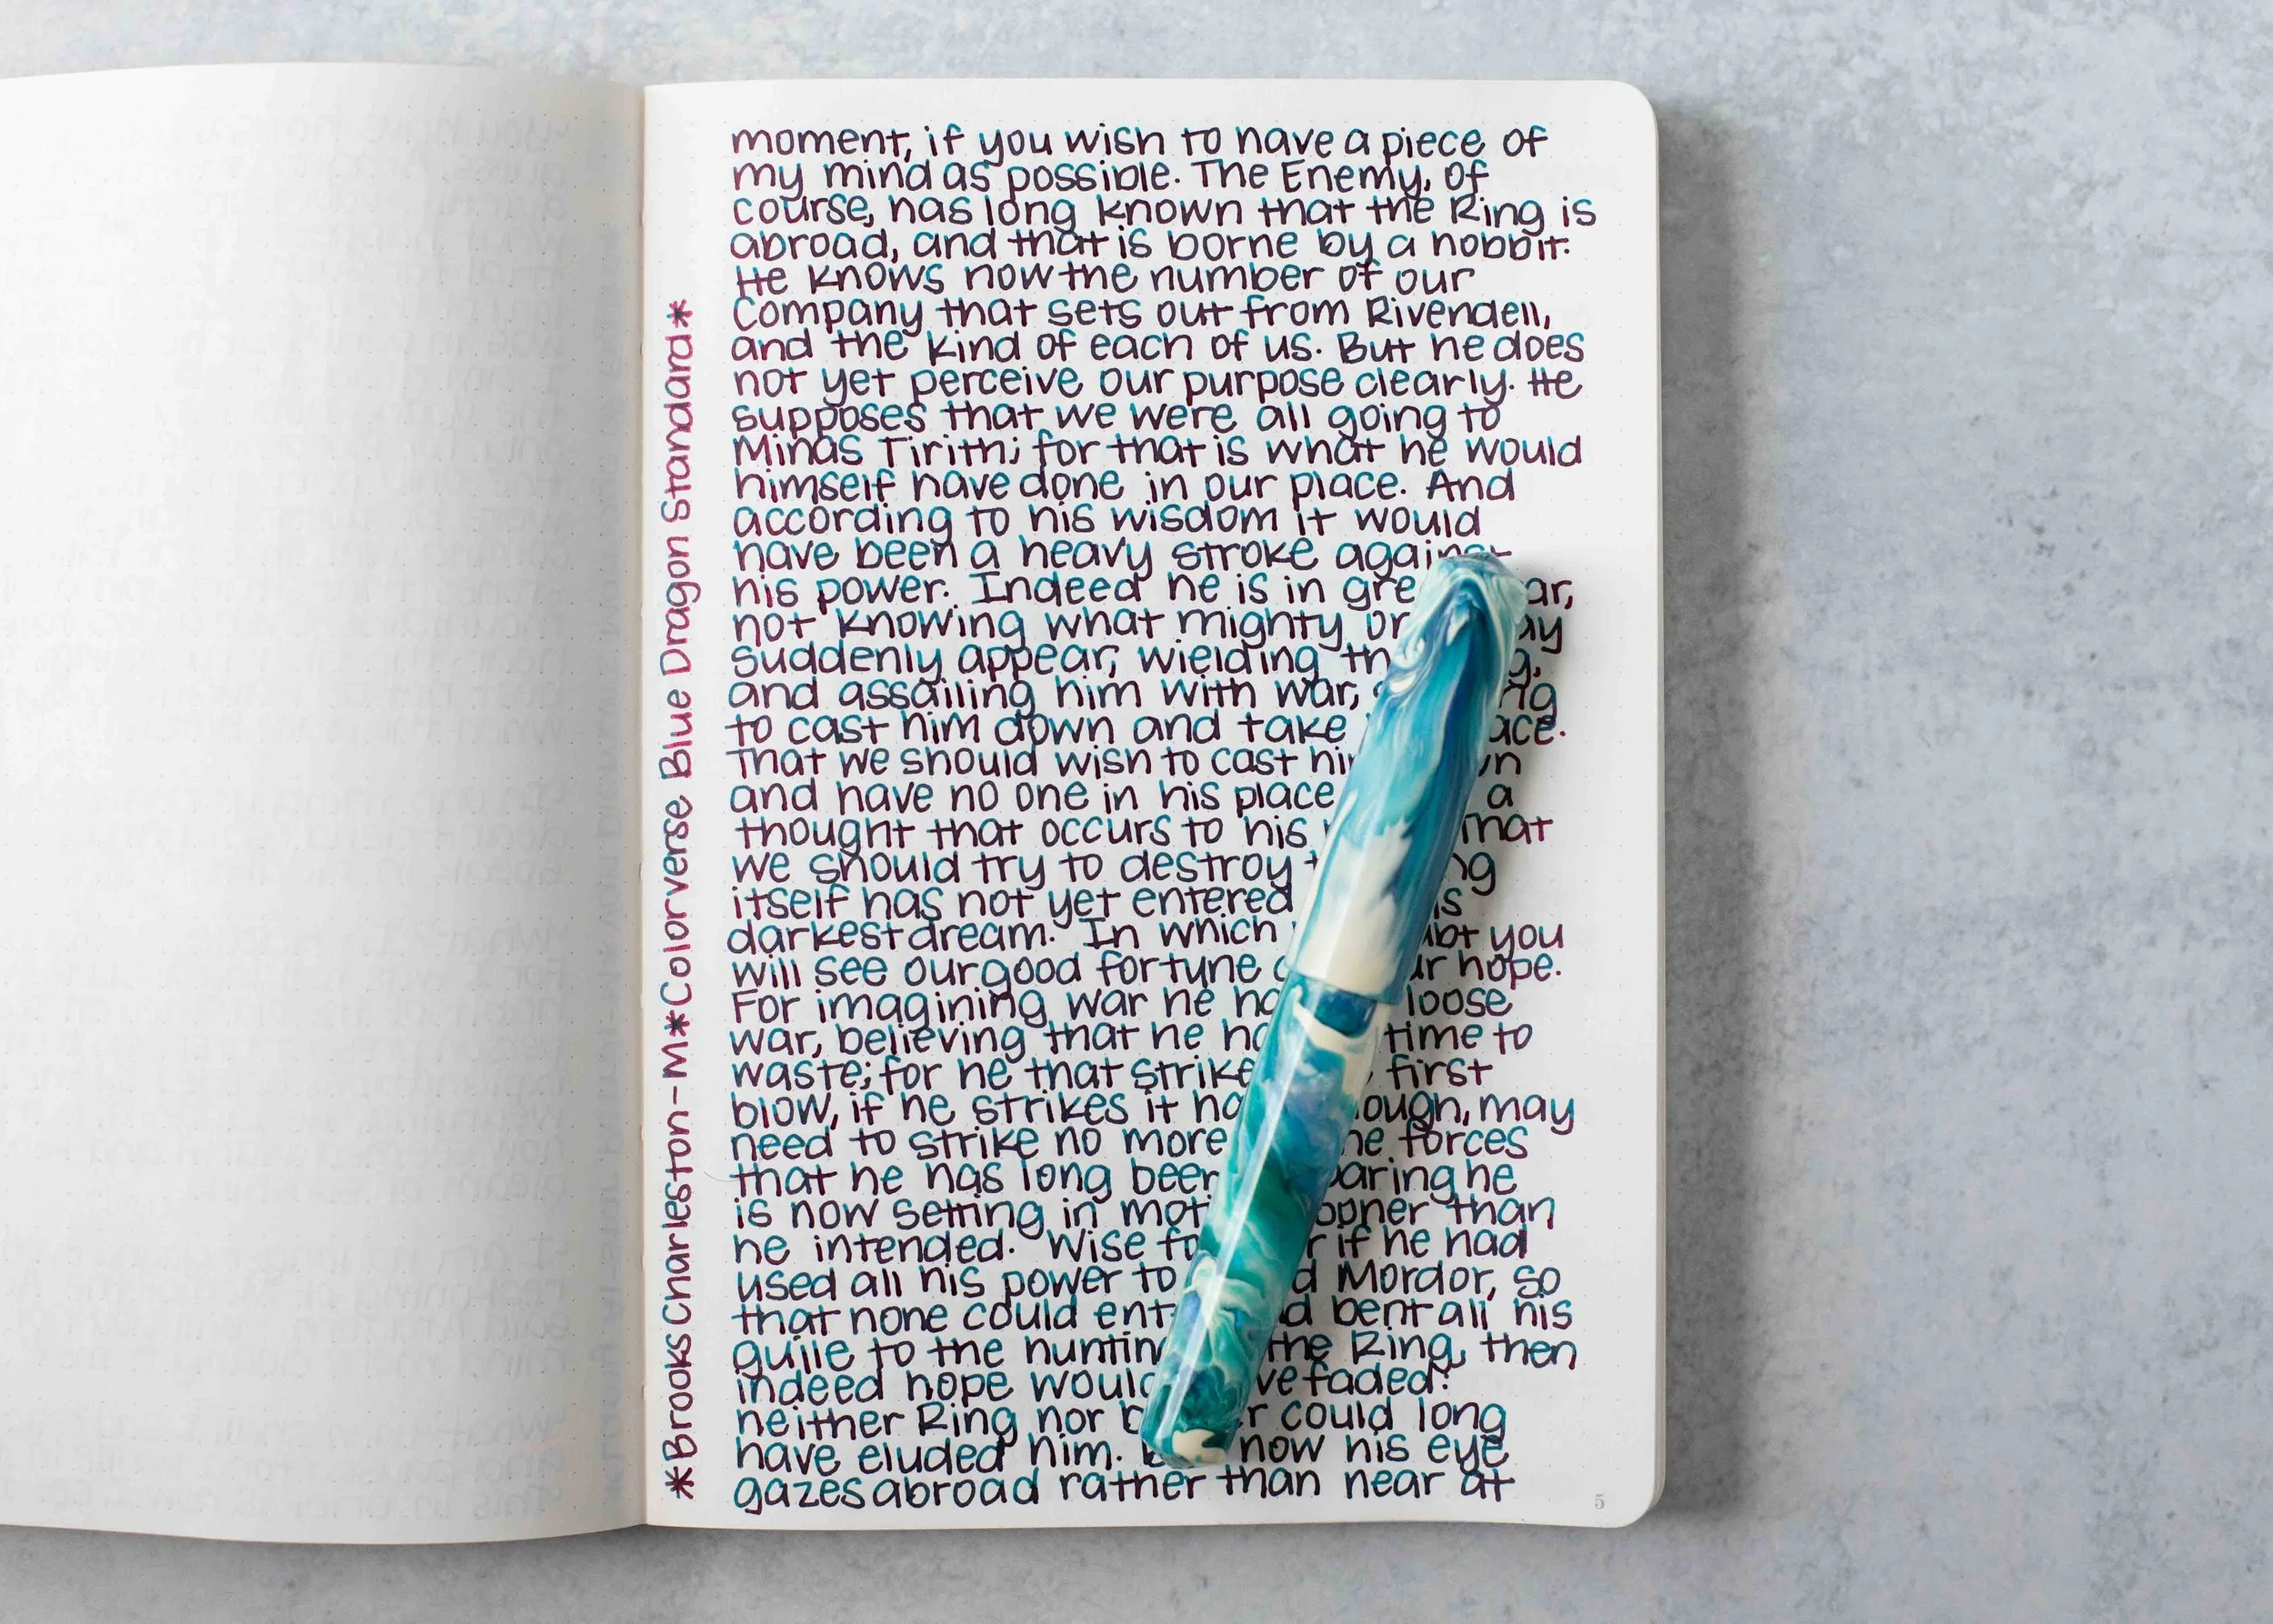 *Brooks Charleston-M*Colorverse Blue Dragon Standard*
moment, if you wish to have a piece of
my mind as possible. The Enemy, of
course, has long known that the Ring is
abroad, and that is borne by a hobbit.
He knows now the number of our
Company that sets out from Rivendell,
and the kind of each of us. But he does
not yet perceive our purpose clearly. He
supposes that we were all going to
Minas Tirith; for that is what he would
himself have done in our place. And
according to his wisdom it would
have been a heavy stroke against
his power. Indeed he is in
not knowing what mighty
suddenly appear, wielding
and assailing him with war,
to cast him down and take
That we should wish to cast
and have no one in his place a
thought that occurs to his That
we should try to destroy
itself has not yet entered
darkest dream. In which you
will see our good fortune hope.
For imagining war he loose
war, believing that he time to
waste; for he that first
blow, if he strikes it may
need to strike no more forces
that he has long been he
is now setting in than
he intended. Wise if he had
used all his power to Mordor, so
that none could bent all his
guile to the the Ring, then
indeed hope would faded:
neither Ring nor could long
have eluded him. now his eye
gazes abroad rather than near at
5